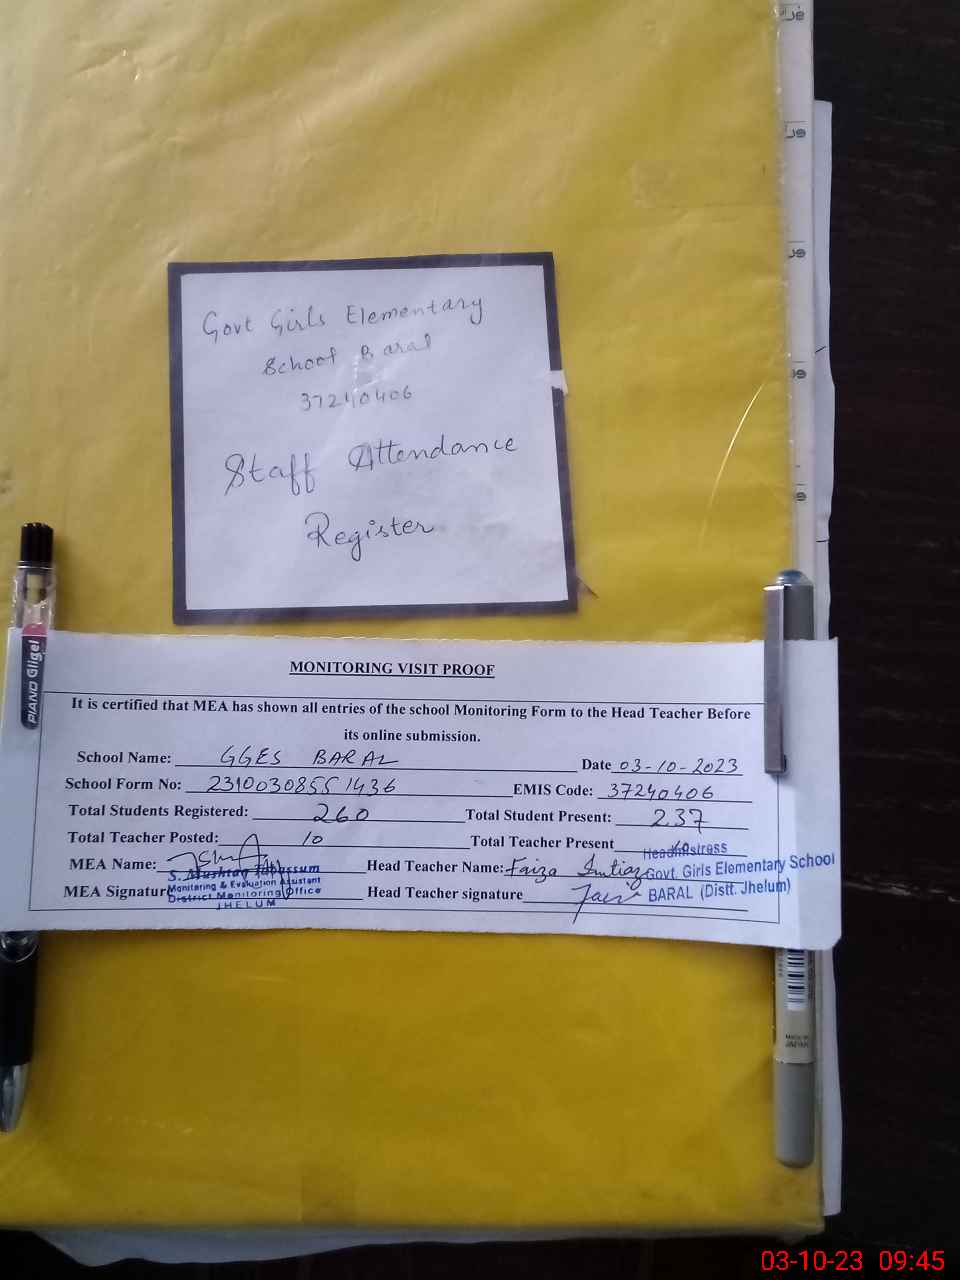 Govt Girls Elementary
School Baral
37240406
Staff Attendance
Register
PIANO Gligel
MONITORING VISIT PROOF
It is certified that MEA has shown all entries of the school Monitoring Form to the Head Teacher Before
its online submission.
School Name: GGES BARAL Date 03-10-2023
School Form No: 2310030855 1436 EMIS Code: 37240406
Total Students Registered: 260 Total Student Present: 237
Total Teacher Posted: 10 Total Teacher Present
MEA Name: Head Teacher Name: Faiza Imtiaz
S. Mushtaq Tabassum
Monitoring & Evaluation Assistant
District Monitoring Office
JHELUM
MEA Signature Head Teacher signature
Headmistress
Govt. Girls Elementary School
BARAL (Distt. Jhelum)
JAPAN
03-10-23 09:45